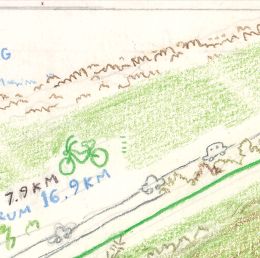 G
7.9KM
RUM 16.9KM